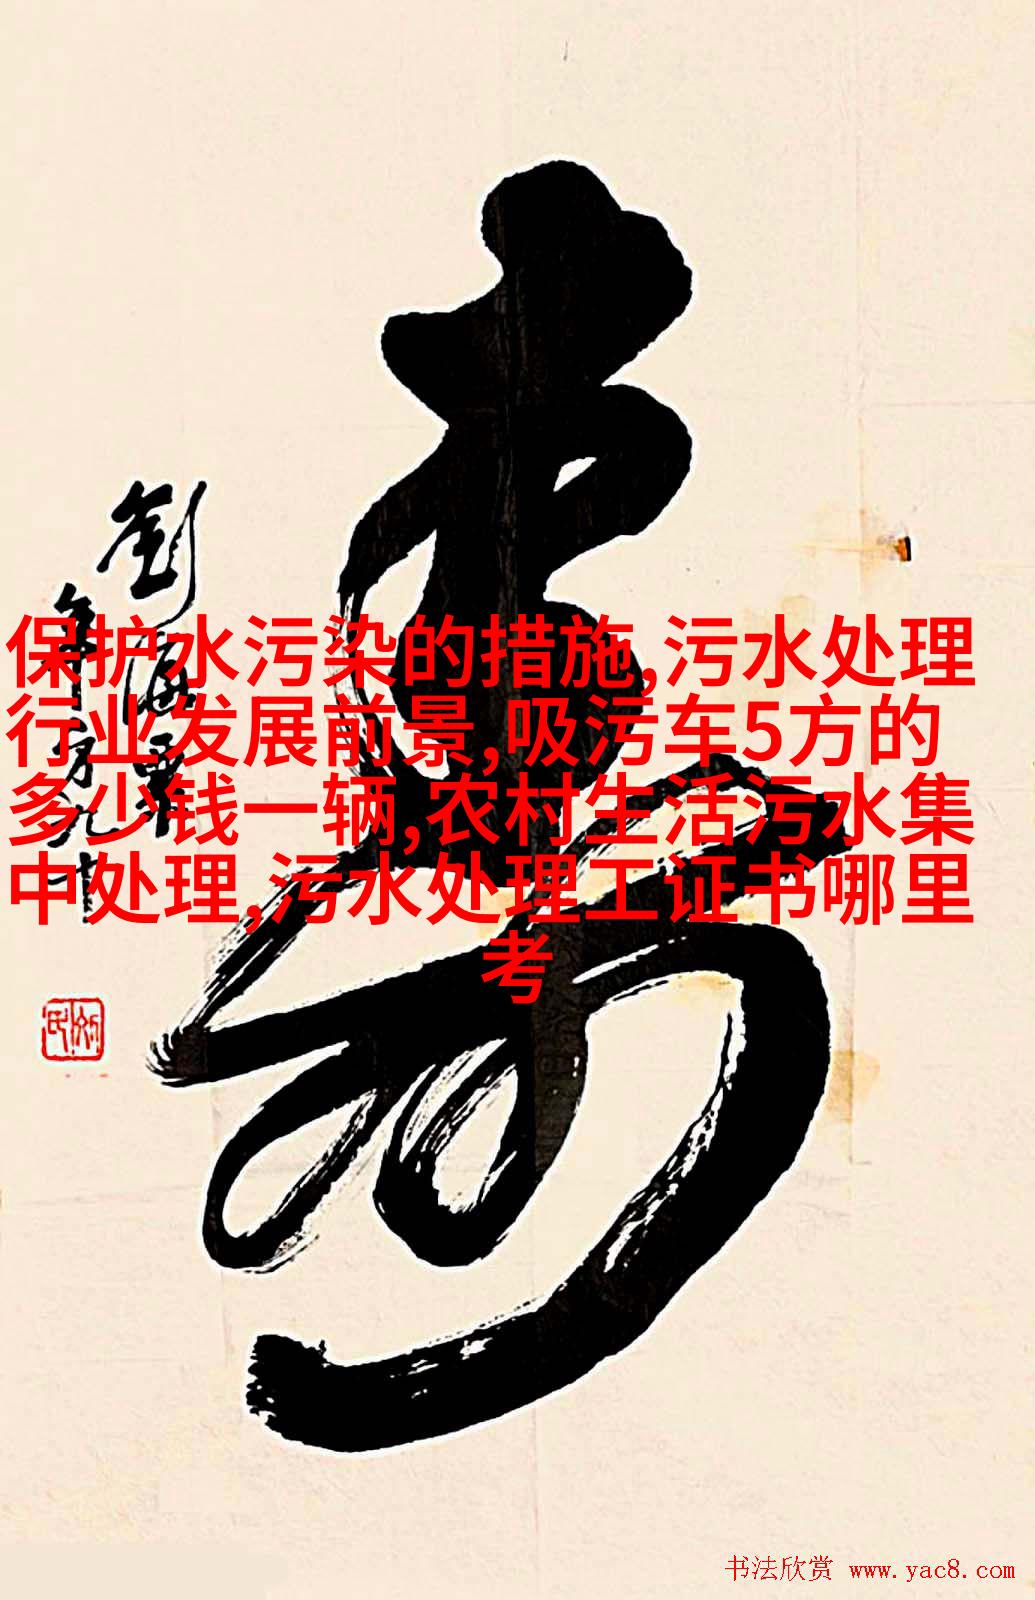 寿
劉海粟
年方九十
保护水污染的措施,污水处理
行业发展前景,吸污车5方的
多少钱一辆,农村生活污水集
中处理,污水处理工证书哪里
考
书法欣赏 www.yac8.com